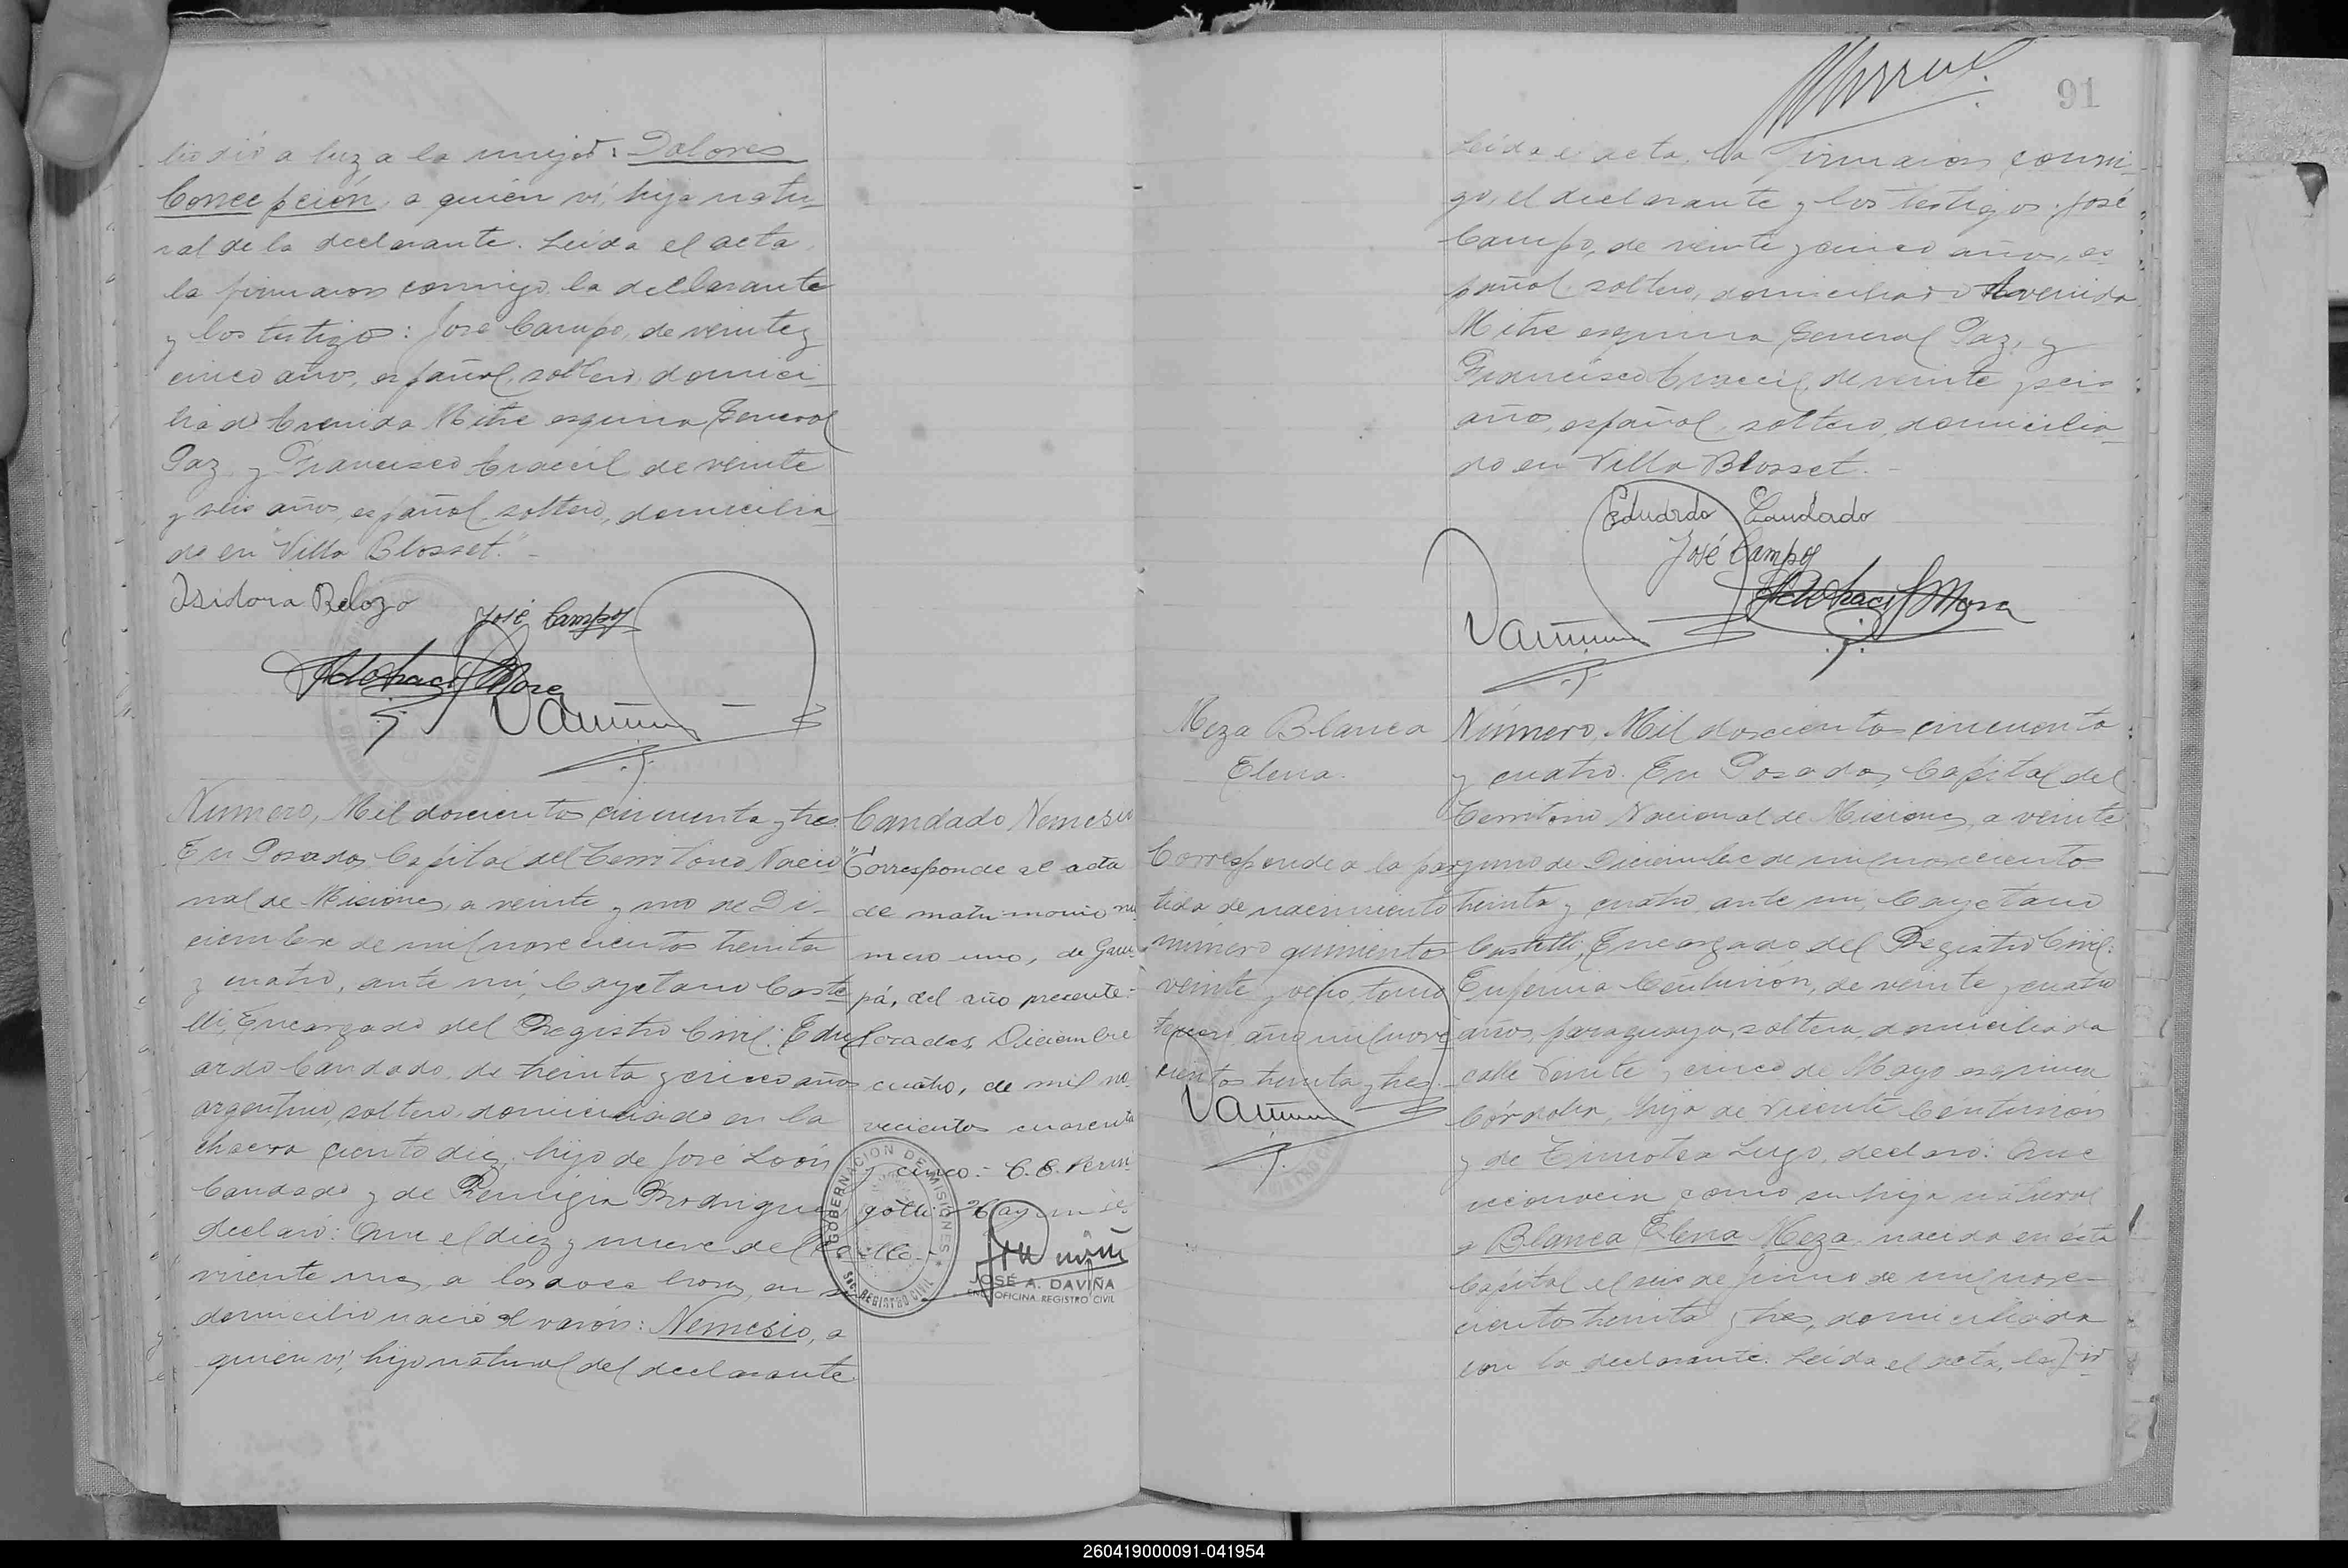 lio dió a luz a la mujer: Dolores
Concepción, a quién ví, hija natu-
ral de la declarante. Leída el acta,
la firmaron conmigo, la declarante
y los testigos: José Campo, de veinte y
cinco años, español, soltero, domici-
liado Avenida Mitre esquina General
Paz, y Francisco Araccil de veinte
y seis años, español, soltero, domicilia-
do en "Villa Blosset." -
Isidora Belozo
José Campoy
Mora
Número, Mil doscientos cincuenta y tres.
En Posadas, Capital del Territorio Nacio
nal de Misiones, a veinte y uno de Di-
ciembre de mil novecientos treinta
y cuatro, ante mí, Cayetano Caste
lli, Encargado del Registro Civil: Edu
ardo Candado, de treinta y cinco años
argentino, soltero, domiciliado en la
chacra ciento diez, hijo de José León
Candado y de Remigia Rodriguez
declaró: Que el diez y nueve del co
rriente mes, a las doce horas, en su
domicilio nació el varón: Nemesio, a
quien ví, hijo natural del declarante
Candado Nemesio
"Corresponde al acta
de matrimonio nu
mero uno, de Garu-
pá, del año presente.-
Posadas, Diciembre
cuatro, de mil no
vecientos cuarenta
y cinco.-
GOBERNACION DE MISIONES
SEC. REGISTRO CIVIL
JOSÉ A. DAVIÑA
ENC. OFICINA REGISTRO CIVIL
91
Leída el acta, la firmaron conmi-
go, el declarante y los testigos: José
Campo, de veinte y cinco años, es-
pañol, soltero, domiciliado Avenida
Mitre esquina General Paz, y
Francisco Araccil, de veinte y seis
años, español, soltero, domicilia-
do en Villa Blosset. -
Eduardo Candado
José Campoy
Mora
Meza Blanca
Elena.
Corresponde a la par
tida de nacimiento
número quinientos
veinte y ocho, tomo
tercero, año mil nove
cientos treinta y tres.
Número, Mil doscientos cincuenta
y cuatro. En Posadas, Capital del
Territorio Nacional de Misiones, a veinte
y uno de Diciembre de mil novecientos
treinta y cuatro, ante mí, Cayetano
Castelli, Encargado del Registro Civil:
Eufemia Centurión, de veinte y cuatro
años, paraguaya, soltera, domiciliada
calle Veinte y cinco de Mayo esquina
Córdoba, hija de Vicente Centurión
y de Timotea Lugo, declaró: Que
reconocía como su hija natural
a Blanca Elena Meza, nacida en ésta
Capital el seis de Junio de mil nove-
cientos treinta y tres, domiciliada
con la declarante. Leída el acta, la fir
260419000091-041954